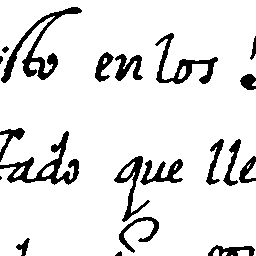 isto en los
tado que lle